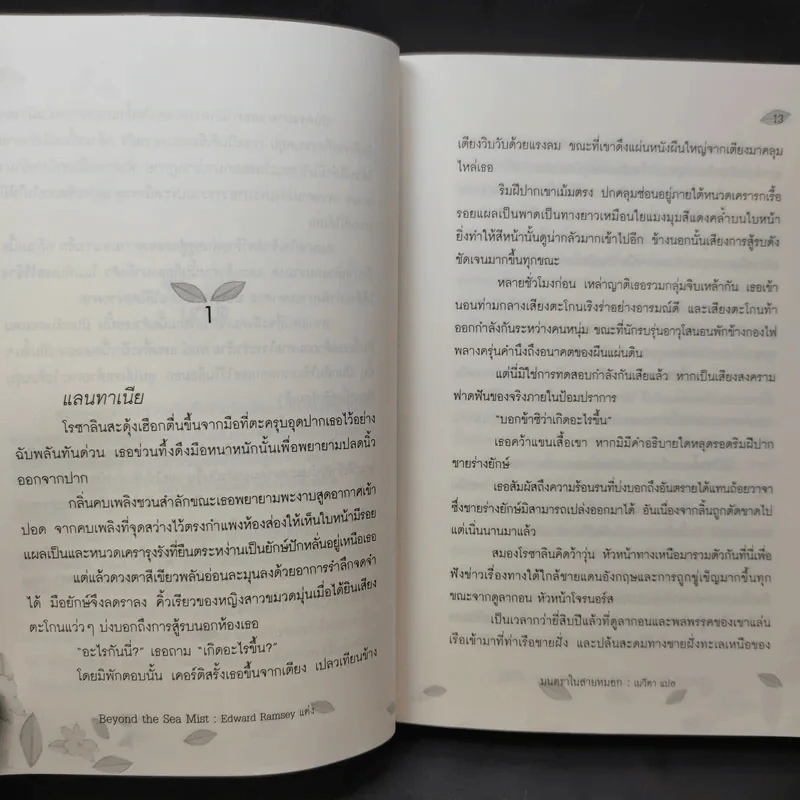 1
แลนทาเนีย
โรซาลินสะดุ้งเฮือกตื่นขึ้นจากมือที่ตะครุบอุดปากเธอไว้อย่าง
ฉับพลันทันด่วน เธอข่วนทึ้งดึงมือหนาหนักนั้นเพื่อพยายามปลดนิ้ว
ออกจากปาก
กลิ่นคบเพลิงชวนสำลักขณะเธอพยายามพะงาบสูดอากาศเข้า
ปอด จากคบเพลิงที่จุดสว่างไว้ตรงกำแพงห้องส่องให้เห็นใบหน้ามีรอย
แผลเป็นและหนวดเครารุงรังที่ยืนตระหง่านเป็นยักษ์ปักหลั่นอยู่เหนือเธอ
แต่แล้วดวงตาสีเขียวพลันอ่อนละมุนลงด้วยอาการรำลึกจดจำ
ได้ มือยักษ์จึงลดราลง คิ้วเรียวของหญิงสาวขมวดมุ่นเมื่อได้ยินเสียง
ตะโกนแว่วๆ บ่งบอกถึงการสู้รบนอกห้องเธอ
“อะไรกันนี่?” เธอถาม “เกิดอะไรขึ้น?”
โดยมิพักตอบนั้น เคอร์ติสรั้งเธอขึ้นจากเตียง เปลวเทียนข้าง
Beyond the Sea Mist : Edward Ramsey แต่ง
13
เตียงวิบวับด้วยแรงลม ขณะที่เขาดึงแผ่นหนังผืนใหญ่จากเตียงมาคลุม
ไหล่เธอ
ริมฝีปากเขาเม้มตรง ปกคลุมซ่อนอยู่ภายใต้หนวดเครารกเรื้อ
รอยแผลเป็นพาดเป็นทางยาวเหมือนใยแมงมุมสีแดงคล้ำบนใบหน้า
ยิ่งทำให้สีหน้านั้นดูน่ากลัวมากเข้าไปอีก ข้างนอกนั้นเสียงการสู้รบดัง
ชัดเจนมากขึ้นทุกขณะ
หลายชั่วโมงก่อน เหล่าญาติเธอรวมกลุ่มจิบเหล้ากัน เธอเข้า
นอนท่ามกลางเสียงตะโกนเริงร่าอย่างอารมณ์ดี และเสียงตะโกนท้า
ออกกำลังกันระหว่างคนหนุ่ม ขณะที่นักรบรุ่นอาวุโสนอนพักข้างกองไฟ
พลางครุ่นคำนึงถึงอนาคตของผืนแผ่นดิน
แต่นี่มิใช่การทดสอบกำลังกันเสียแล้ว หากเป็นเสียงสงคราม
ฟาดฟันของจริงภายในป้อมปราการ
“บอกข้าซิว่าเกิดอะไรขึ้น”
เธอคว้าแขนเสื้อเขา หากมิมีคำอธิบายใดหลุดรอดริมฝีปาก
ชายร่างยักษ์
เธอสัมผัสถึงความร้อนรนที่บ่งบอกถึงอันตรายได้แทนถ้อยวาจา
ซึ่งชายร่างยักษ์มิสามารถเปล่งออกมาได้ อันเนื่องจากลิ้นถูกตัดขาดไป
แต่เนิ่นนานมาแล้ว
สมองโรซาลินคิดว้าวุ่น หัวหน้าทางเหนือมารวมตัวกันที่นี่เพื่อ
ฟังข่าวเรื่องทางใต้ใกล้ชายแดนอังกฤษและการถูกขู่เข็ญมากขึ้นทุก
ขณะจากดูลากอน หัวหน้าโจรนอร์ส
เป็นเวลากว่ายี่สิบปีแล้วที่ดูลากอนและพลพรรคของเขาแล่น
เรือเข้ามาที่ท่าเรือชายฝั่ง และปล้นสะดมทางชายฝั่งทะเลเหนือของ
มนตราในสายหมอก : เมวิกา แปล